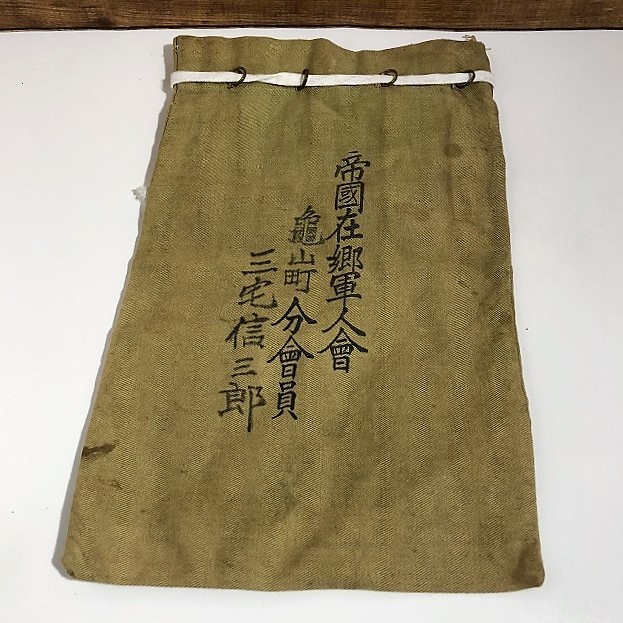 帝國在郷軍人會
龜山町分會員
三宅信三郎